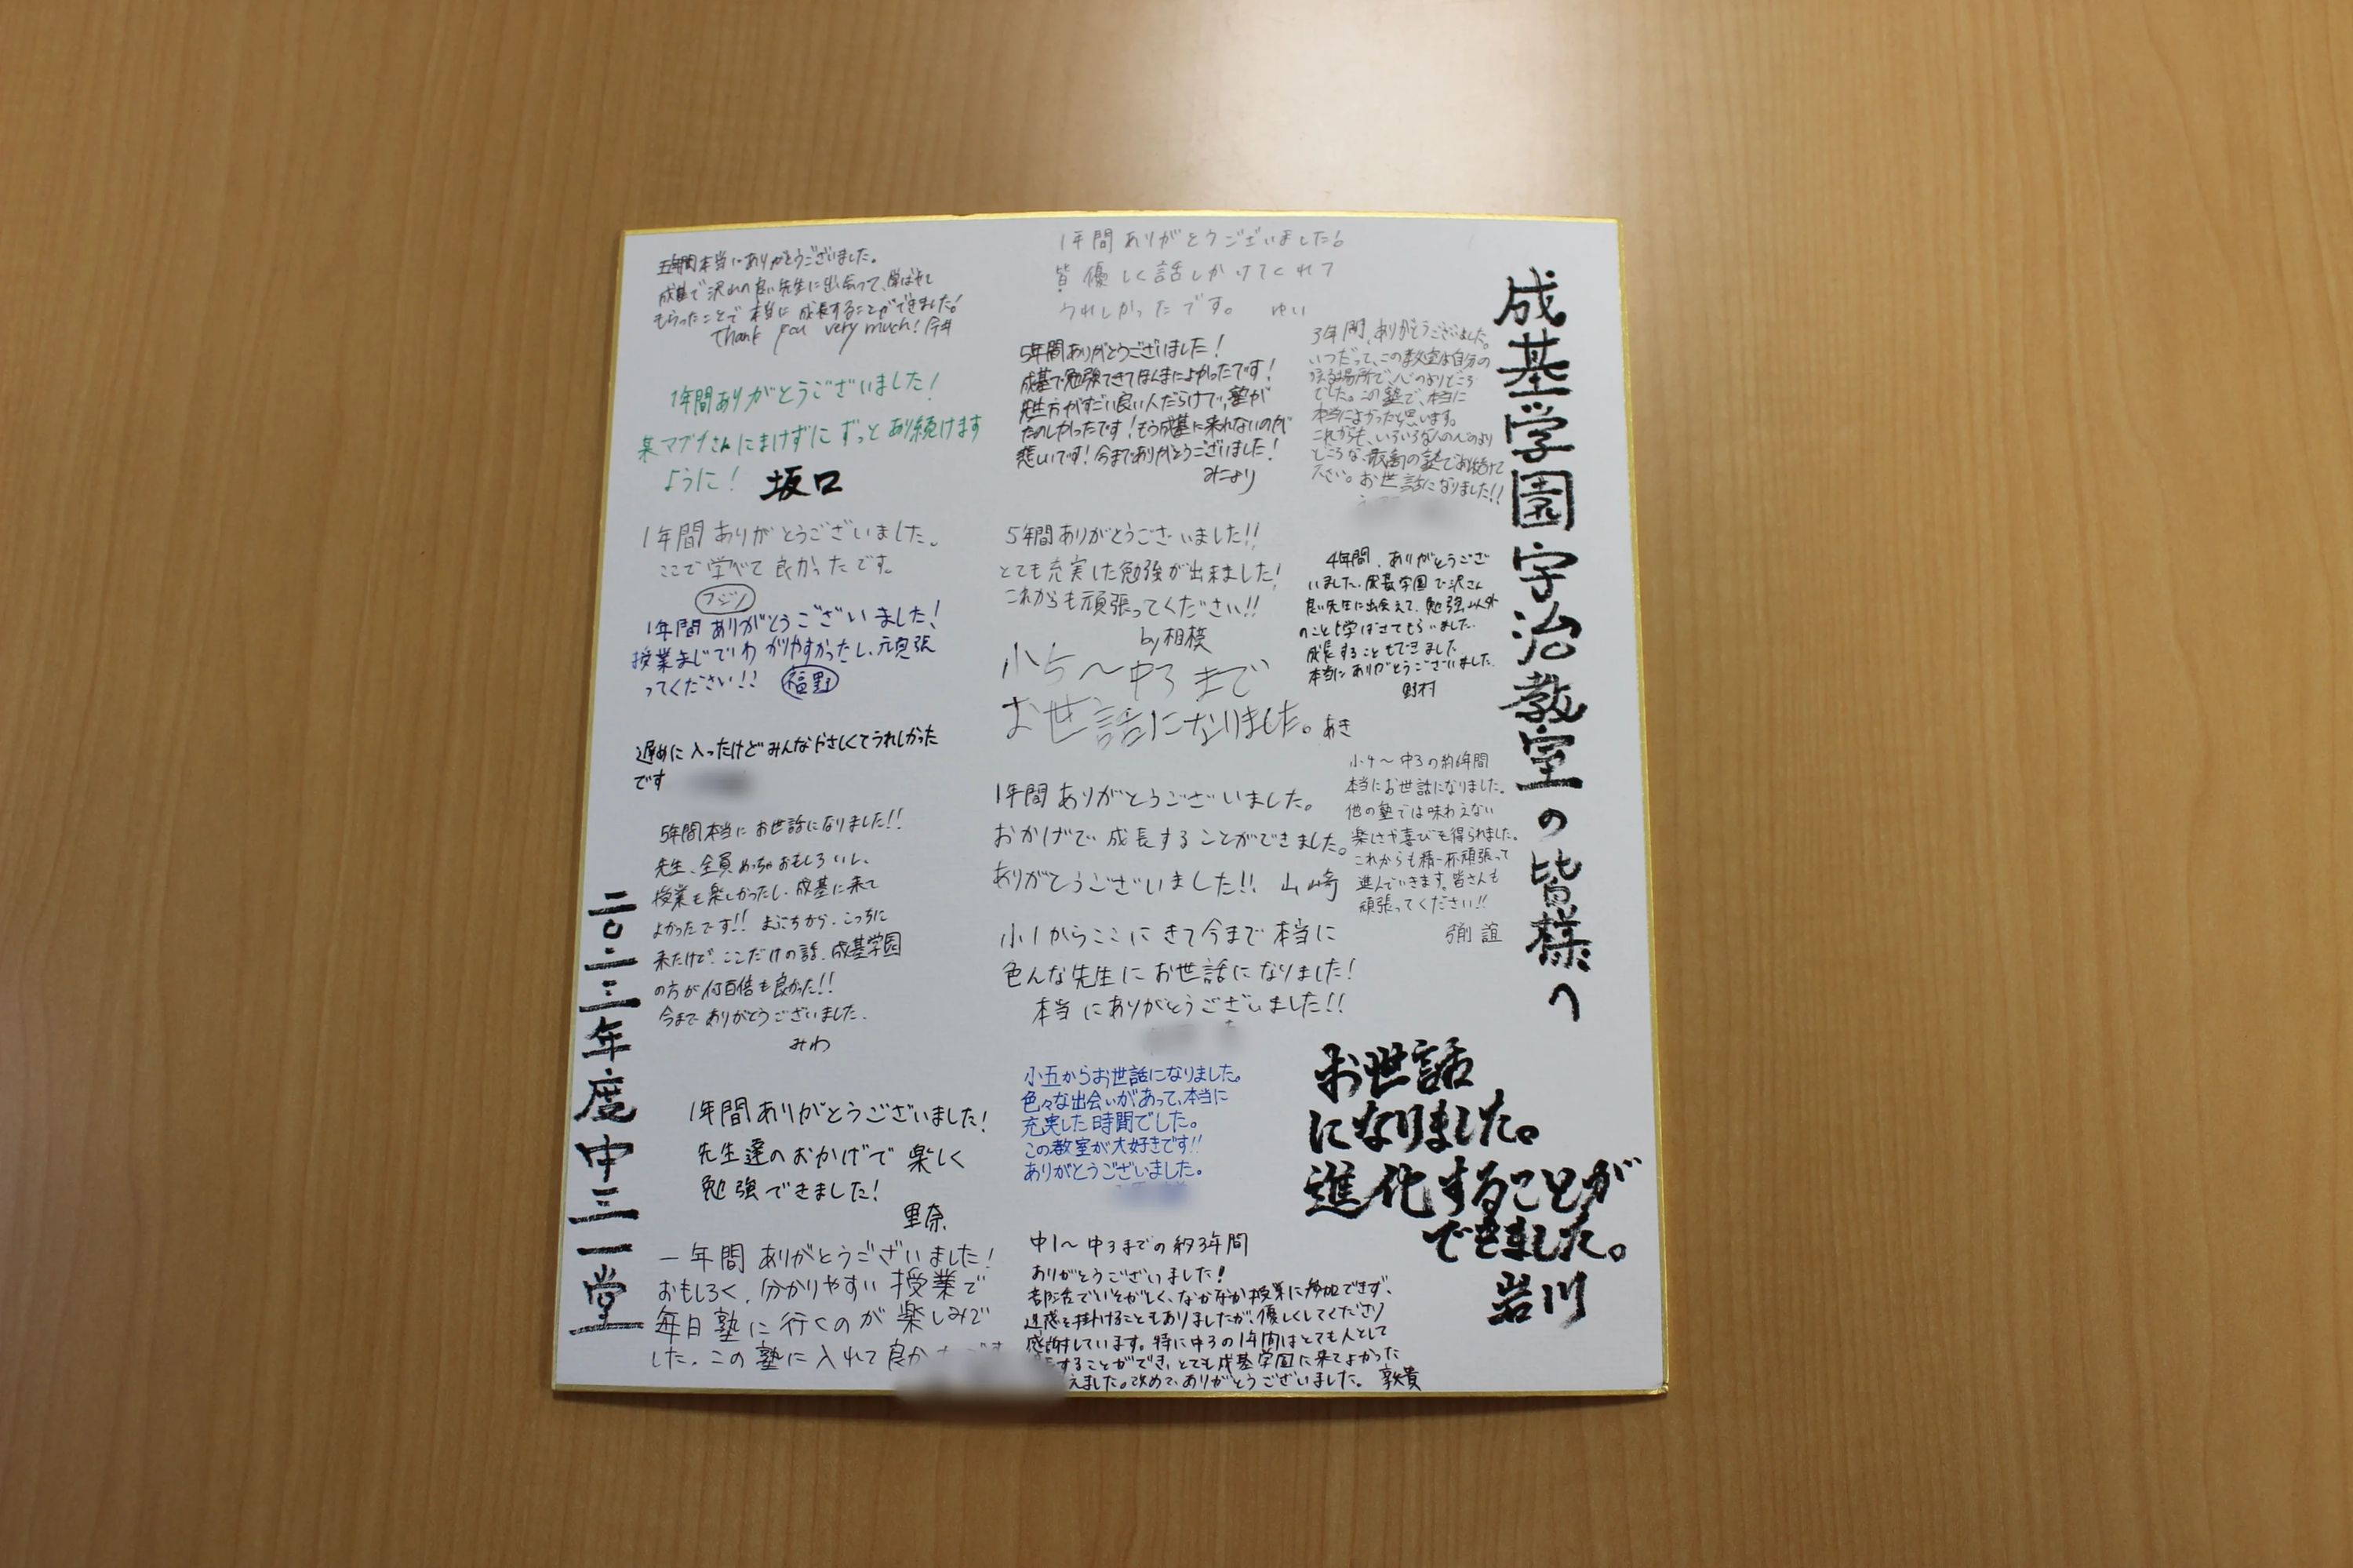 成基学園宇治教室の皆様へ
五年間本当にありがとうございました。
成基で沢山の良い先生に出会って、学ばせて
もらったことで本当に成長することができました!
Thank you very much! 今井
1年間ありがとうございました!
某マブチさんにまけずにずっとあり続けます
ように! 坂口
1年間ありがとうございました。
ここで学べて良かったです。
フジノ
1年間ありがとうございました!
授業まじでわかりやすかったし、頑張
ってください!! 福野
遅めに入ったけどみんなやさしくてうれしかった
です
5年間本当にお世話になりました!!
先生、全員めっちゃおもしろいし、
授業も楽しかったし、成基に来て
よかったです!! まぶちから、こっちに
来たけど、ここだけの話、成基学園
の方が何百倍も良かった!!
今までありがとうございました。
みわ
1年間ありがとうございました!
先生達のおかげで楽しく
勉強できました!
里奈
一年間ありがとうございました!
おもしろく、分かりやすい授業で
毎日塾に行くのが楽しみで
した。この塾に入れて良か
1年間ありがとうございました!
皆優しく話しかけてくれて
うれしかったです。 ゆい
5年間ありがとうございました!
成基で勉強できてほんまによかったです!
先生方がすごい良い人だらけで、塾が
たのしかったです!もう成基に来れないのが
悲しいです!今までありがとうございました!
みこより
5年間ありがとうございました!!
とても充実した勉強が出来ました!
これからも頑張ってください!!
by相模
小5〜中3まで
お世話になりました。あき
1年間ありがとうございました。
おかげで成長することができました。
ありがとうございました!! 山崎
小1からここにきて今まで本当に
色んな先生にお世話になりました!
本当にありがとうございました!!
小五からお世話になりました。
色々な出会いがあって、本当に
充実した時間でした。
この教室が大好きです!!
ありがとうございました。
中1〜中3までの約3年間
ありがとうございました!
部活でいそがしく、なかなか授業に参加できず、
迷惑を掛けることもありましたが、優しくしてくださり
感謝しています。特に中3の1年間はとても人として
することができ、とても成基学園に来てよかった
えました。改めて、ありがとうございました。 敦貴
3年間、ありがとうございました。
いつだって、この教室は自分の
場所で、心のよりどころ
でした。この塾で、本当に
本当によかったと思います。
これからも、いろいろな人の心のより
どころな、最高の塾であり続けて
下さい。お世話になりました!!
4年間、ありがとうござ
いました。成基学園で沢さん
良い先生に出会えて、勉強以外
のことも学ばさてもらいました。
成長することもできました
本当にありがとうございました。
野村
小4〜中3の約6年間
本当にお世話になりました。
他の塾では味わえない
楽しさや喜びも得られました。
これからも精一杯頑張って
進んでいきます。皆さんも
頑張ってください!!
お世話
になりました。
進化することが
できました。
岩川
二〇二三年度中三一堂